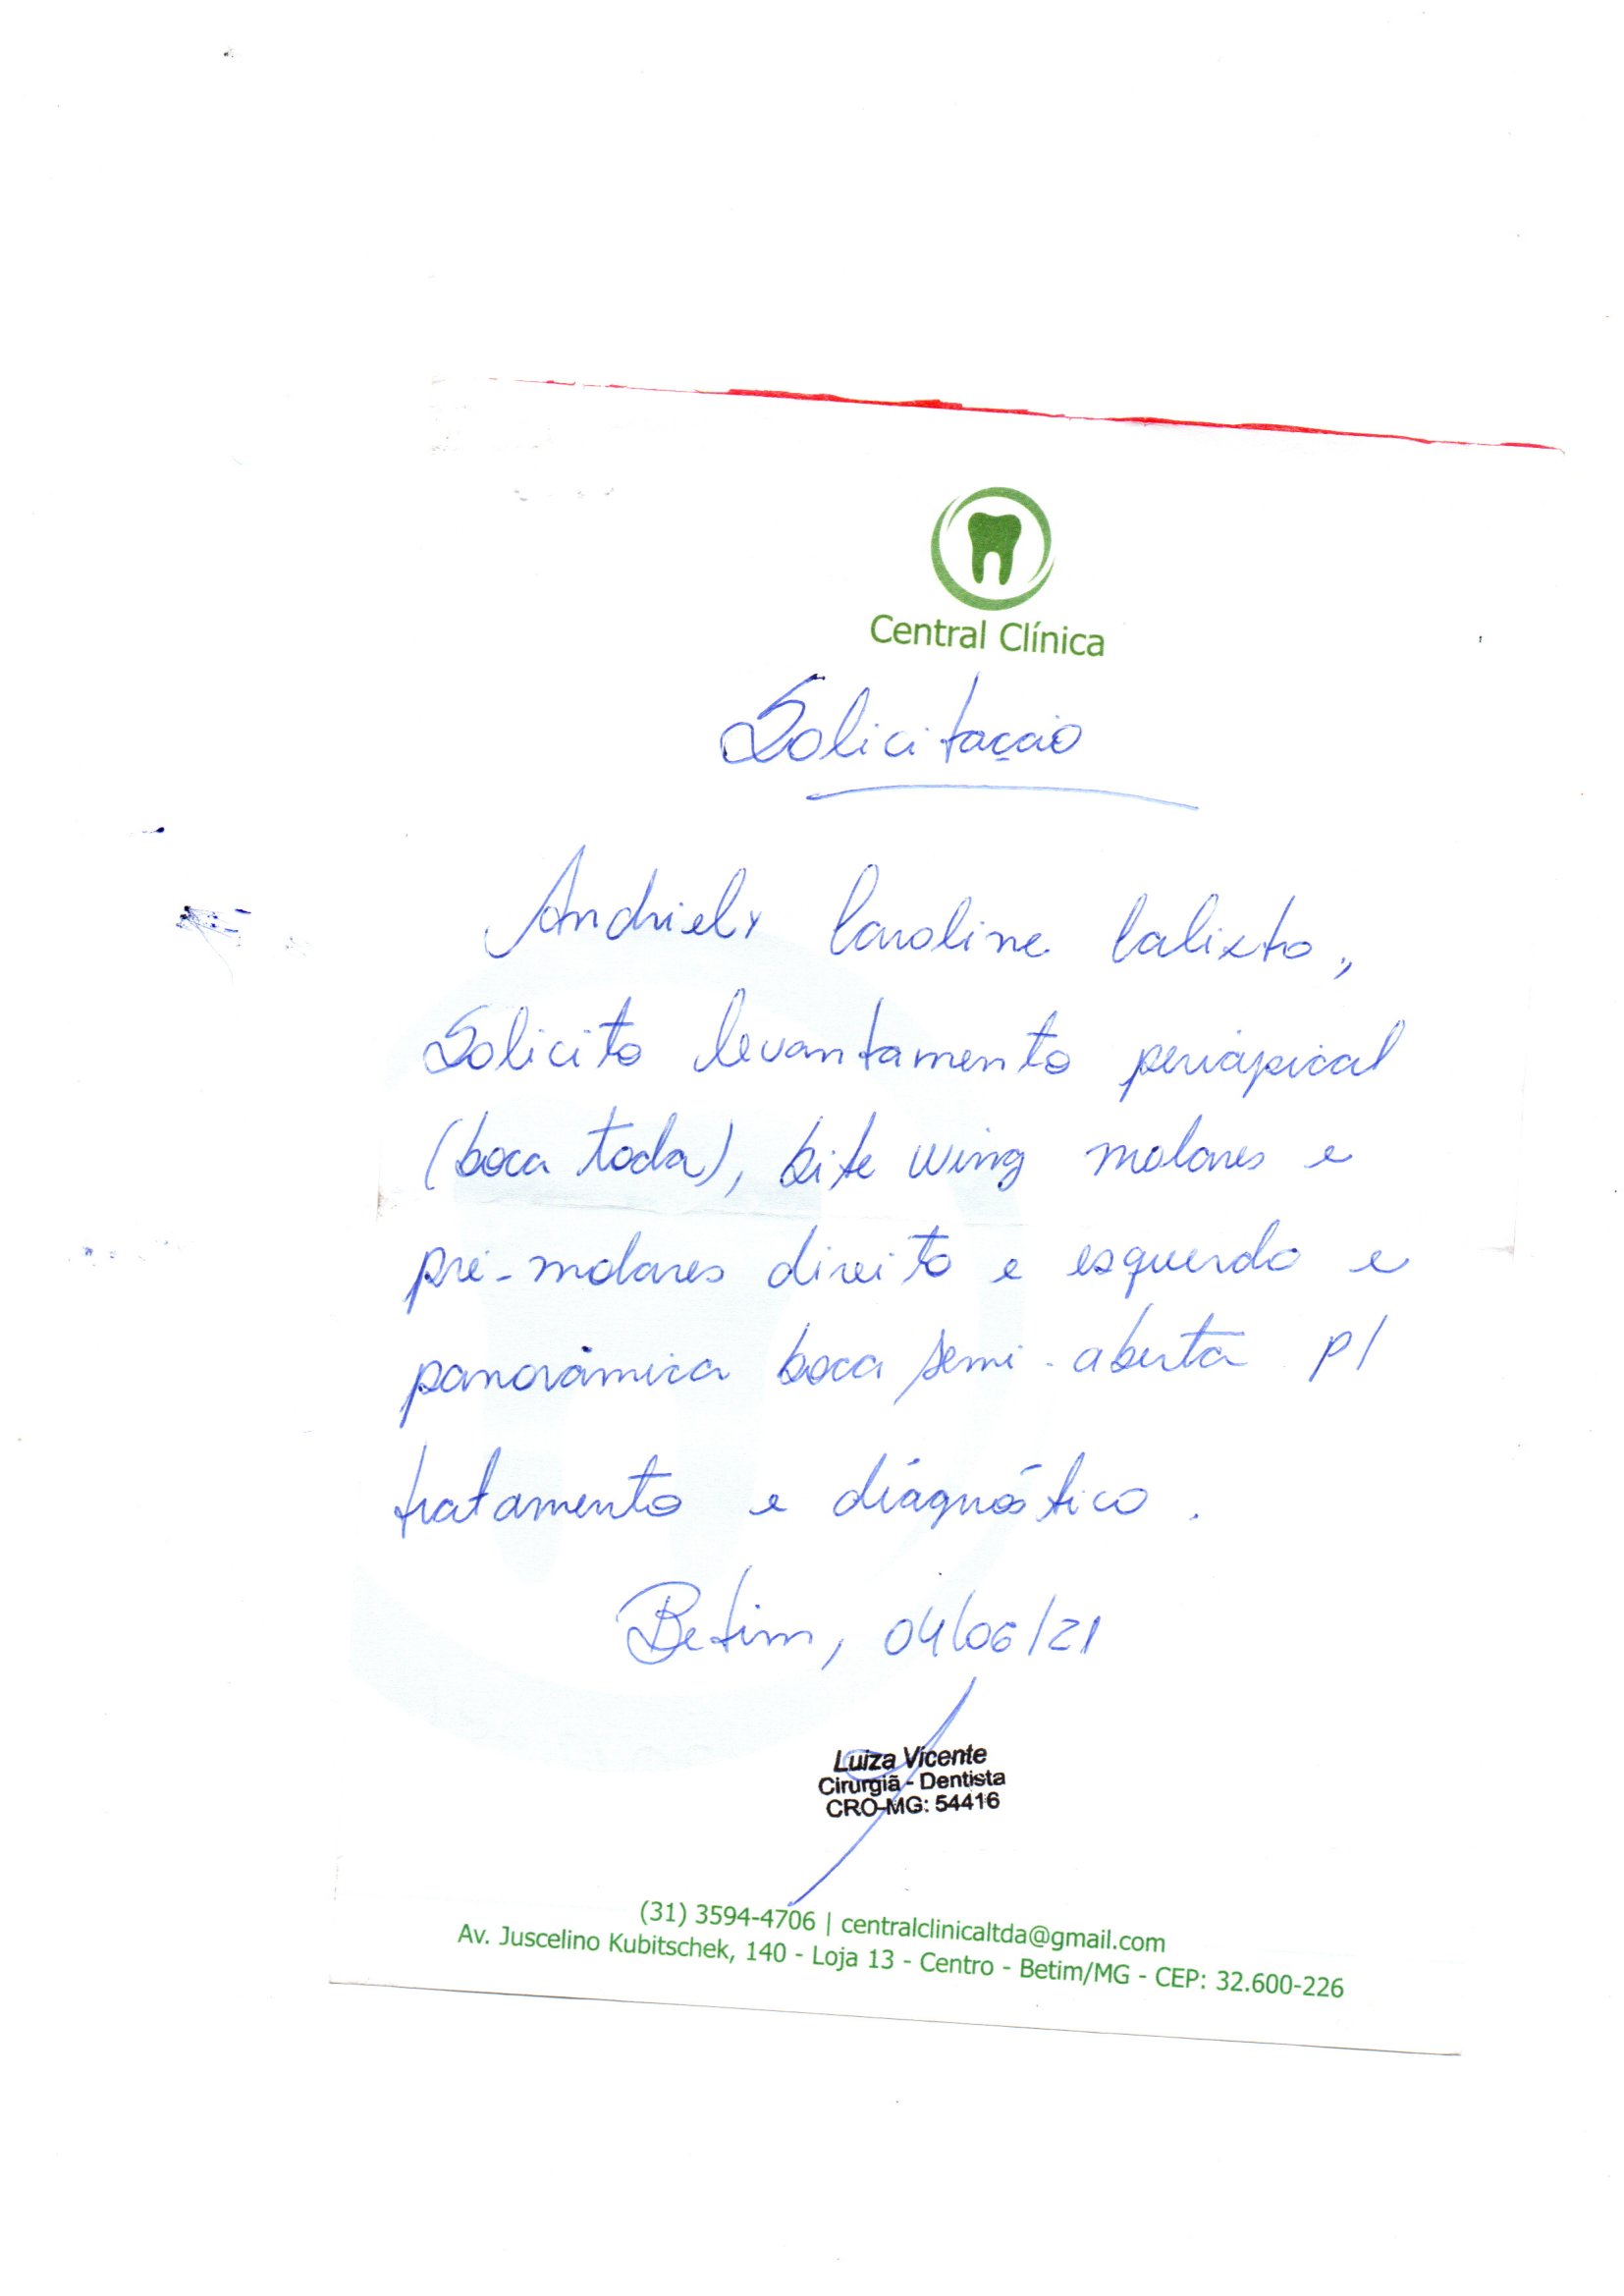 Central Clínica
Solicitação
Andriely Caroline Calixto,
Solicito levantamento periapical
(boca toda), bite wing molares e
pré-molares direito e esquerdo e
panorâmica boca semi-aberta p/
tratamento e diagnóstico.
Betim, 04/06/21
Luiza Vicente
Cirurgiã - Dentista
CRO-MG: 54416
(31) 3594-4706 | centralclinicaltda@gmail.com
Av. Juscelino Kubitschek, 140 - Loja 13 - Centro - Betim/MG - CEP: 32.600-226